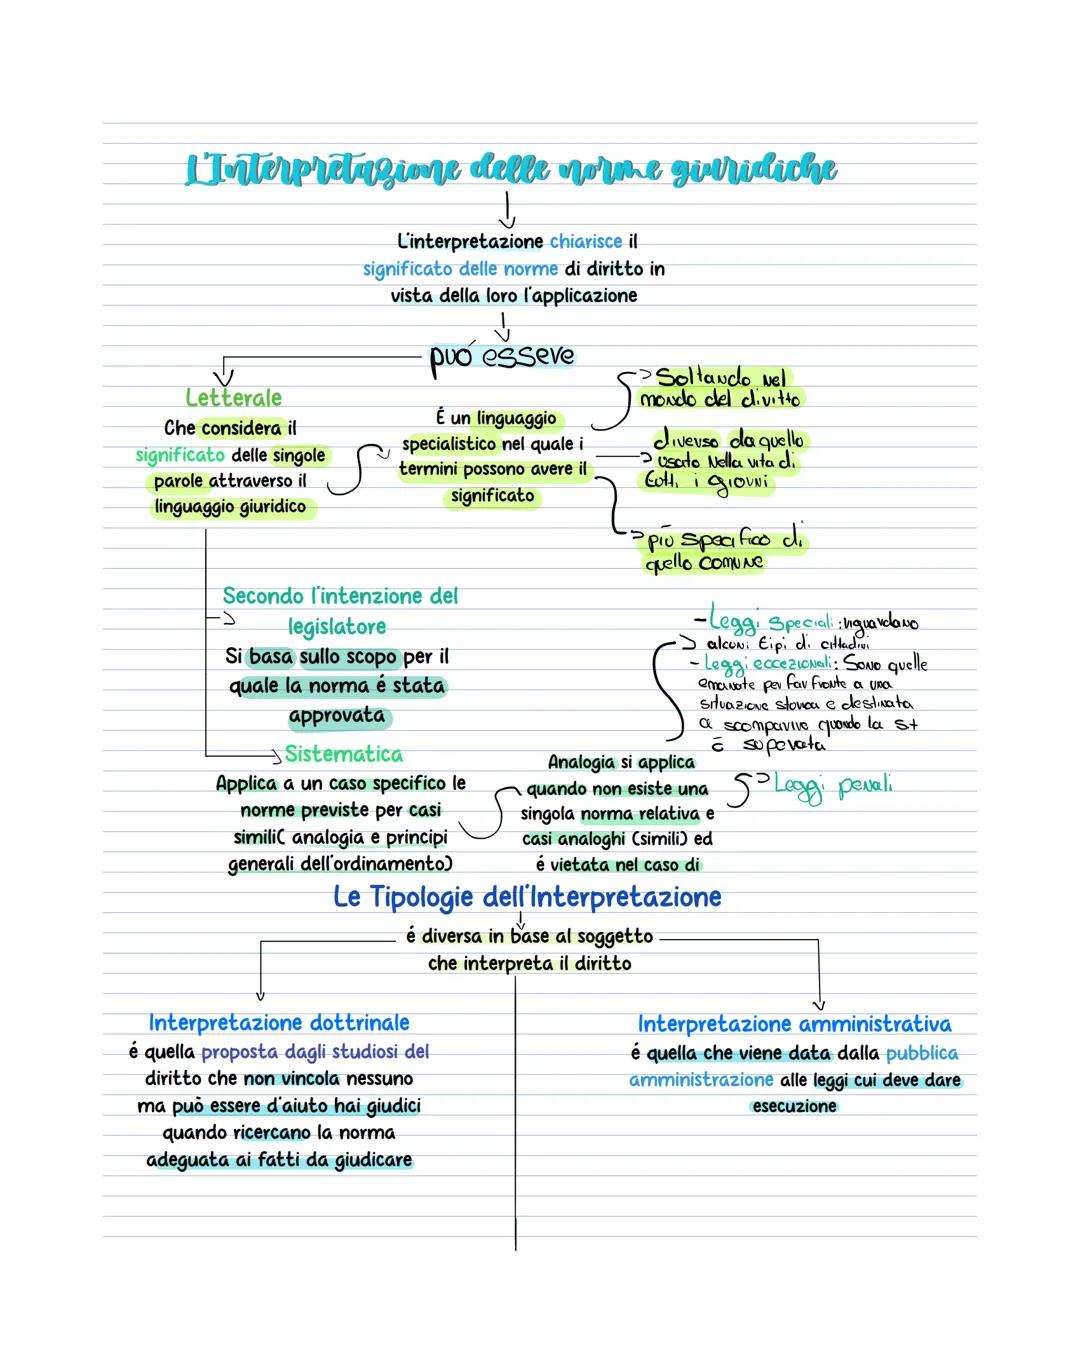 L'Interpretazione delle norme giuridiche
L'interpretazione chiarisce il
significato delle norme di diritto in
vista della loro l'applicazione
può essere
Letterale
Che considera il
significato delle singole
parole attraverso il
linguaggio giuridico
É un linguaggio
specialistico nel quale i
termini possono avere il
significato
Soltando nel
mondo del diritto
diverso da quello
usato nella vita di
tutti i giorni
più specifico di
quello comune
Secondo l'intenzione del
legislatore
Si basa sullo scopo per il
quale la norma é stata
approvata
Sistematica
Applica a un caso specifico le
norme previste per casi
simili( analogia e principi
generali dell'ordinamento)
Analogia si applica
quando non esiste una
singola norma relativa e
casi analoghi (simili) ed
é vietata nel caso di
- Leggi speciali: riguardano
alcuni tipi di cittadini
- Leggi eccezionali: Sono quelle
emanate per far fronte a una
situazione storica e destinata
a scomparire quando la st
è superata
Leggi penali
Le Tipologie dell'Interpretazione
é diversa in base al soggetto
che interpreta il diritto
Interpretazione dottrinale
é quella proposta dagli studiosi del
diritto che non vincola nessuno
ma può essere d'aiuto hai giudici
quando ricercano la norma
adeguata ai fatti da giudicare
Interpretazione amministrativa
é quella che viene data dalla pubblica
amministrazione alle leggi cui deve dare
esecuzione